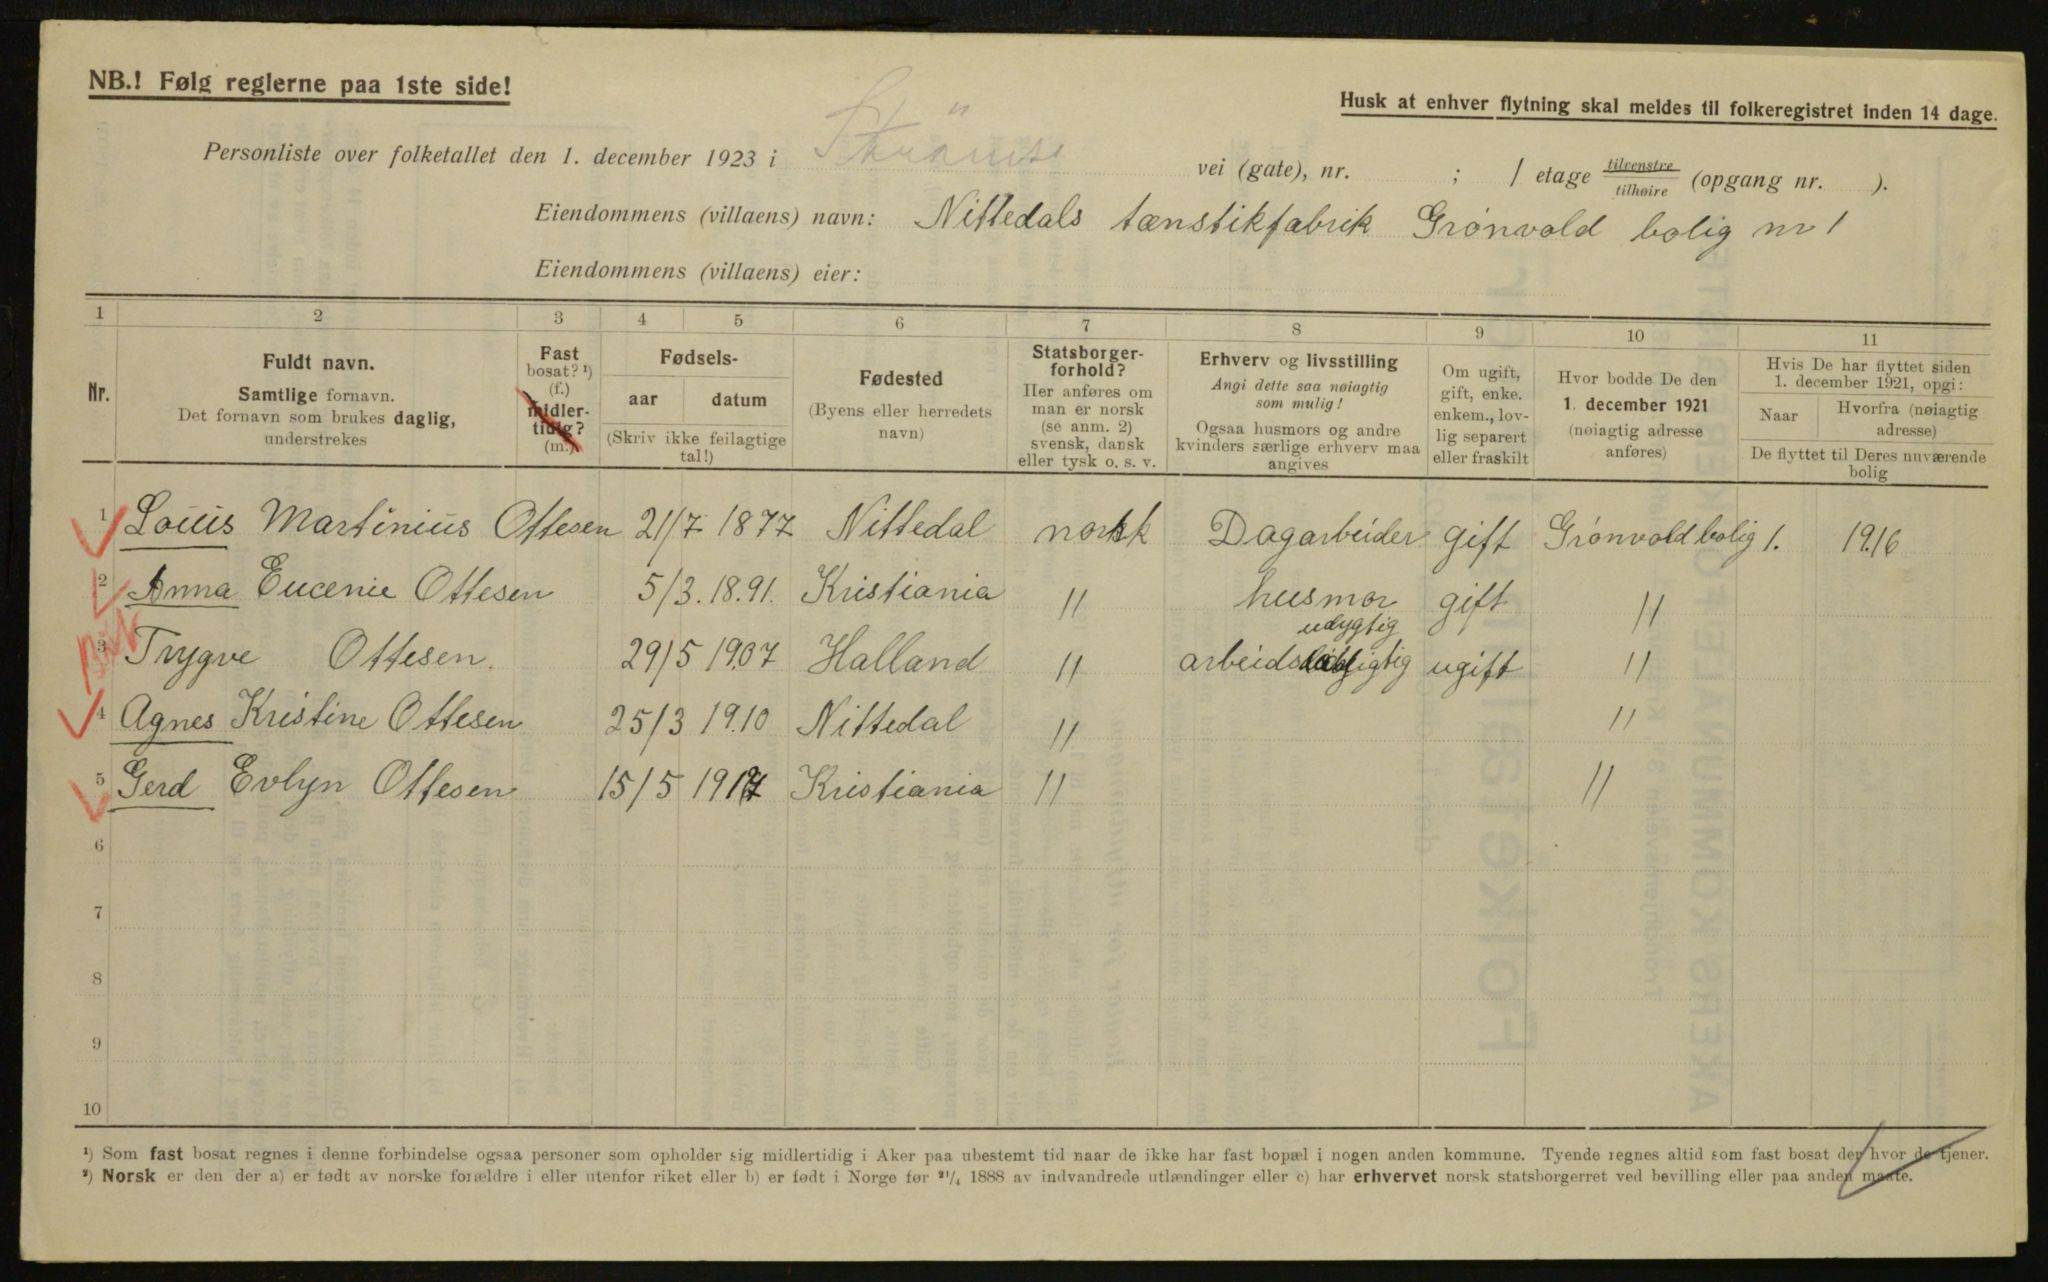 NB.! Følg reglerne paa 1ste side!
Husk at enhver flytning skal meldes til folkeregistret inden 14 dage.
Personliste over folketallet den 1. december 1923 i vei (gate), nr. ; 1 etage tilvenstre tilhøire (opgang nr. ).
Eiendommens (villaens) navn: Nittedals tænstikfabrik Grønvold bolig nr 1
Eiendommens (villaens) eier:
1 2 3 4 5 6 7 8 9 10 11
Nr.
Fuldt navn.
Samtlige fornavn.
Det fornavn som brukes daglig,
understrekes
Fast
bosat? ¹)
(f.)
midler-
tidig?
(m.)
Fødsels-
aar datum
(Skriv ikke feilagtige
tal!)
Fødested
(Byens eller herredets
navn)
Statsborger-
forhold?
Her anføres om
man er norsk
(se anm. 2)
svensk, dansk
eller tysk o. s. v.
Erhverv og livsstilling
Angi dette saa nøiagtig
som mulig!
Ogsaa husmors og andre
kvinders særlige erhverv maa
angives
Om ugift,
gift, enke.
enkem., lov-
lig separert
eller fraskilt
Hvor bodde De den
1. december 1921
(nøiagtig adresse
anføres)
Hvis De har flyttet siden
1. december 1921, opgi:
Naar
Hvorfra (nøiagtig
adresse)
De flyttet til Deres nuværende
bolig
1 Louis Martinius Ottesen 21/7 1877 Nittedal norsk Dagarbeider gift Grønvold bolig 1. 1916
2 Anna Eucenie Ottesen 5/3. 18.91. Kristiania " husmor gift "
3 Trygve Ottesen. 29/5 19.07 Halland " arbeids udygtig ugift "
4 Agnes Kristine Ottesen 25/3 19.10 Nittedal " "
5 Gerd Evlyn Ottesen 15/5 1917 Kristiania " "
6
7
8
9
10
¹) Som fast bosat regnes i denne forbindelse ogsaa personer som opholder sig midlertidig i Aker paa ubestemt tid naar de ikke har fast bopæl i nogen anden kommune. Tyende regnes altid som fast bosat der hvor de tjener.
²) Norsk er den der a) er født av norske forældre i eller utenfor riket eller b) er født i Norge før ²¹/₄ 1888 av indvandrede utlændinger eller c) har erhvervet norsk statsborgerret ved bevilling eller paa anden maate.